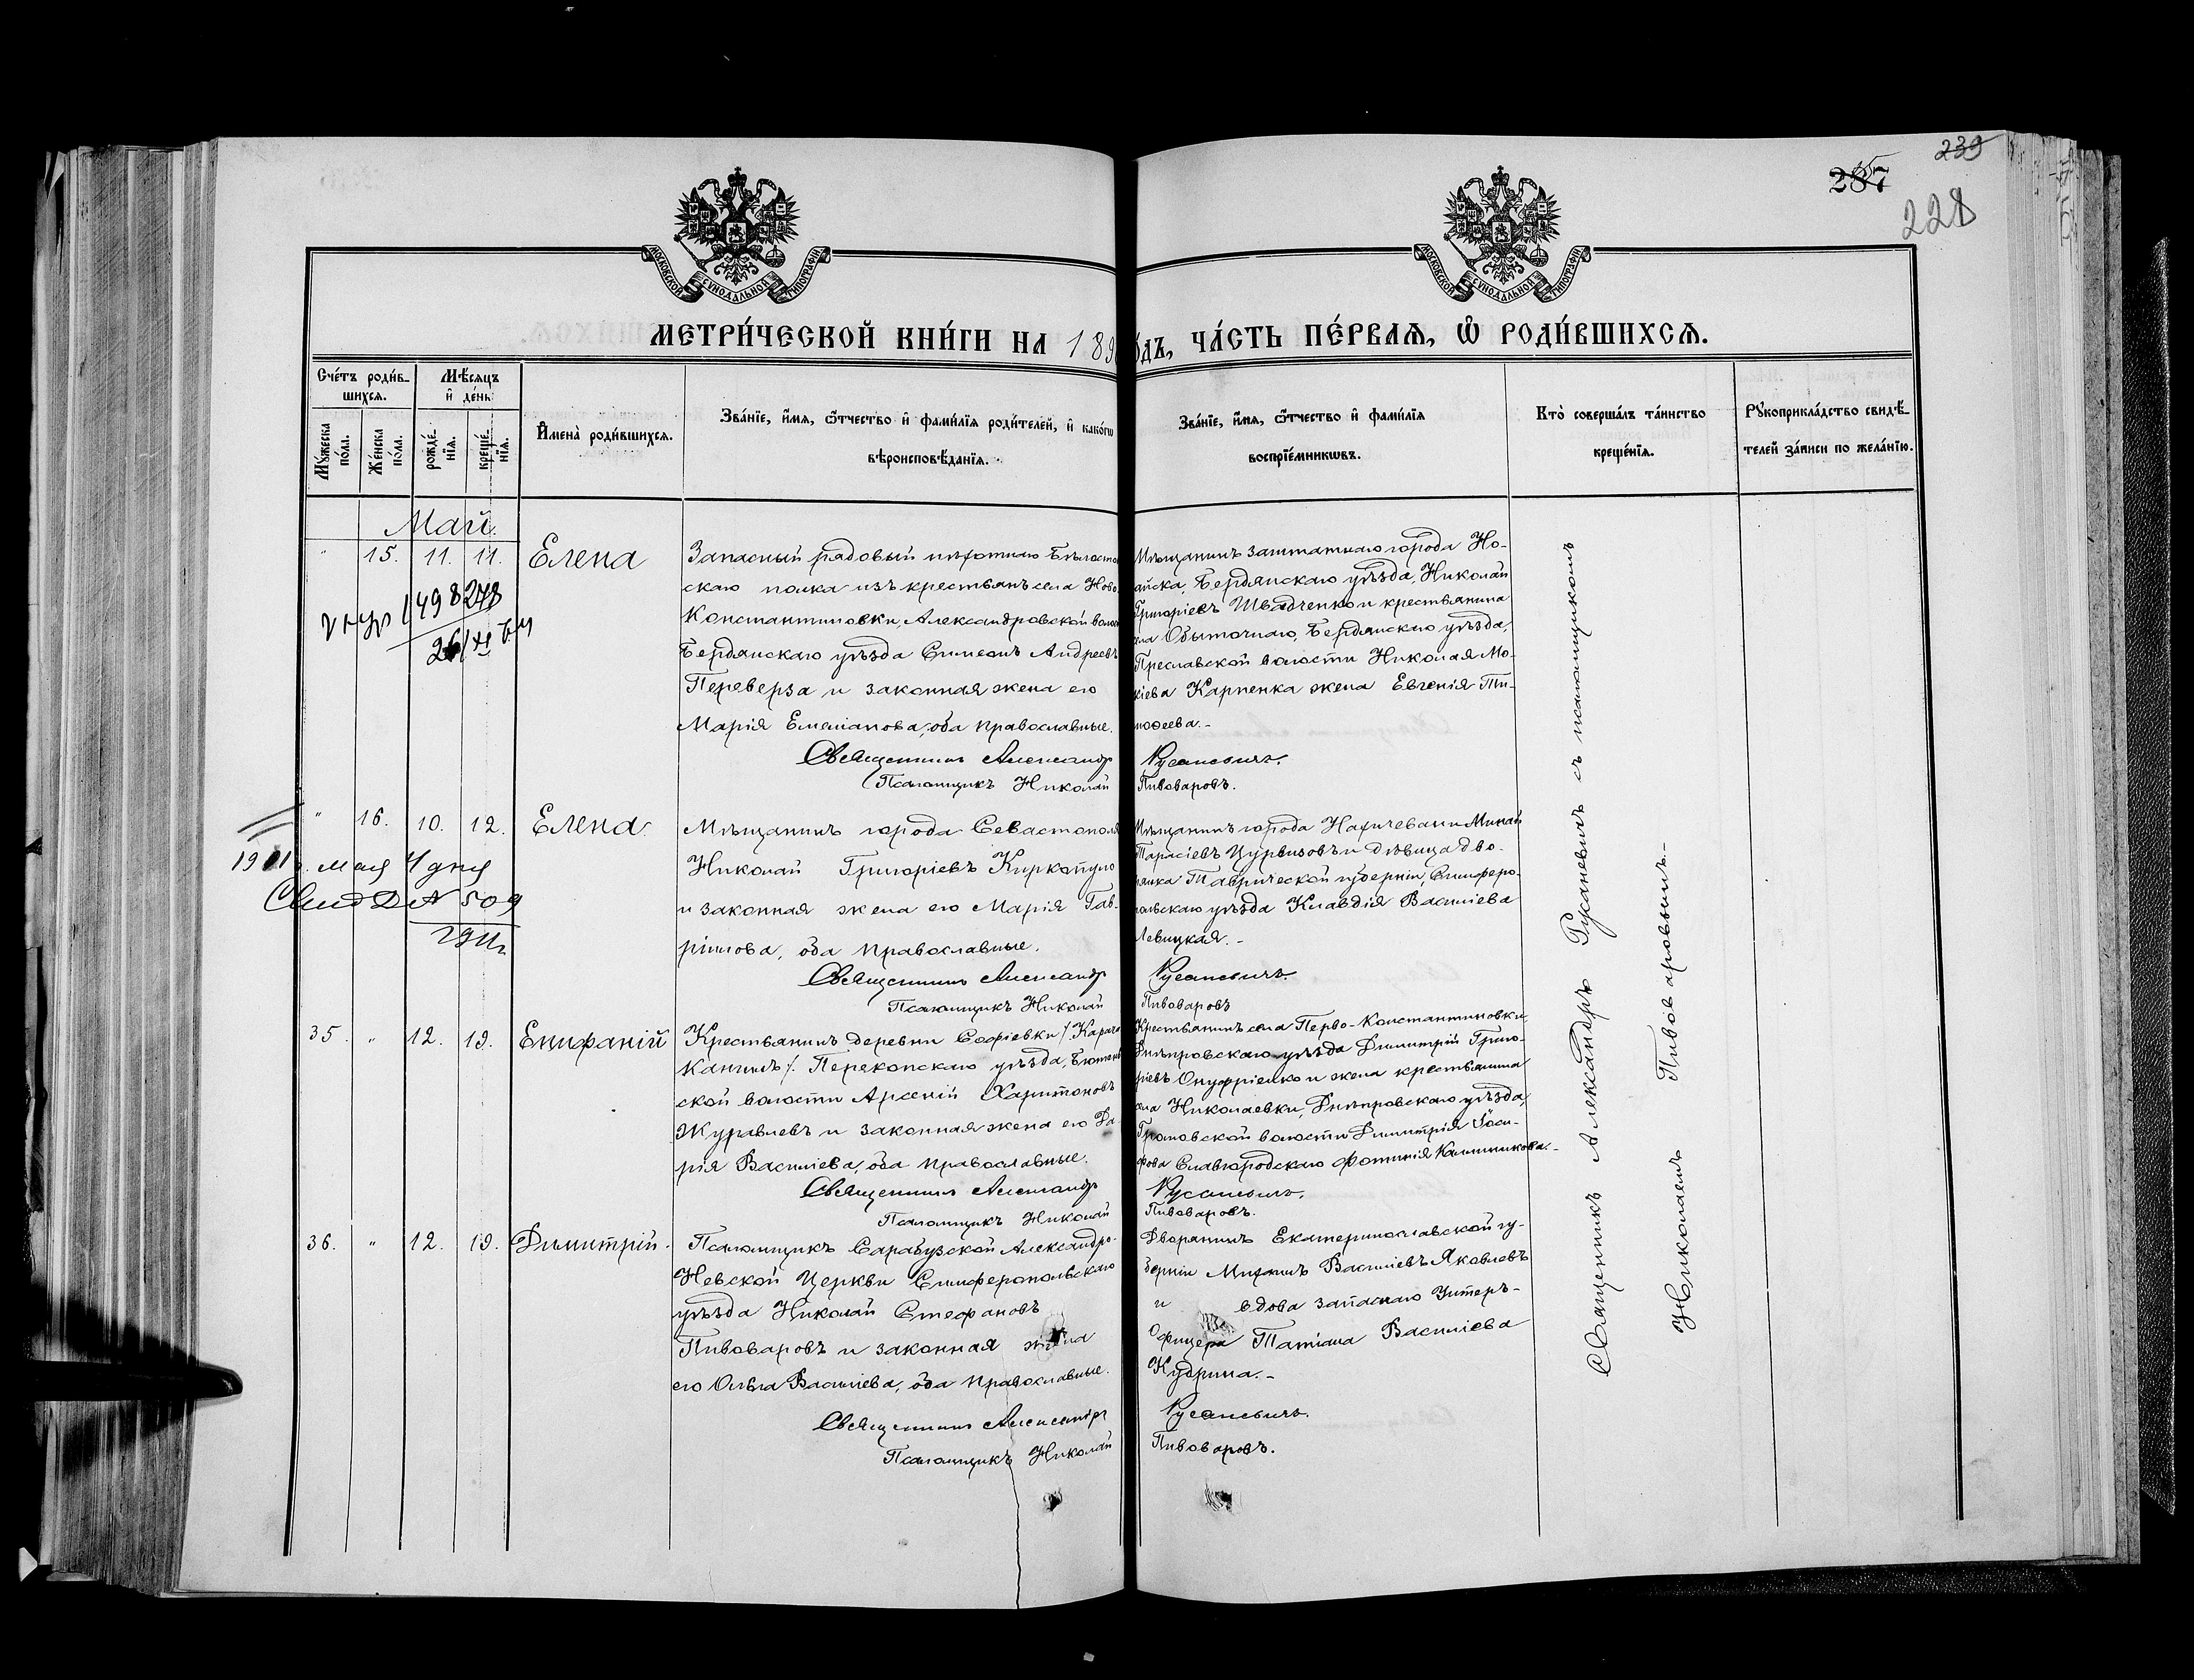 239
287
228
МОСКОВСКОЙ СѴНОДАЛЬНОЙ ТИПОГРАФІИ
МОСКОВСКОЙ СѴНОДАЛЬНОЙ ТИПОГРАФІИ
МЕТРИ́ЧЕСКОЙ КНИ́ГИ НА 189
ДЪ, ЧА́СТЬ ПЕ́РВАѦ, Ѽ РОДИ́ВШИХСѦ.
Счéтъ роди́в-
шихся.
Мѣ́сяцъ
и҆ дéнь
Мꙋ́жеска пóла.
Жéнска пóла.
рождé-
нїя.
крещé-
нїя.
И҆мена̀ роди́вшихся.
Звáнїе, и҆́мя, ѻ҆́тчество и҆ фами́лїя роди́телей, и҆ какóгѡ
вѣроисповѣ́данїя.
Звáнїе, и҆́мя, ѻ҆́тчество и҆ фами́лїя
воспрїéмникѡвъ.
Ктò совершáлъ тáинство
крещéнїя.
Рꙋкоприклáдство свидѣ́-
телей зáписи по желáнїю.
Май.
" 15. 11. 11. Елена
Запасный рядовый пѣхотнаго Бѣлосто
скаго полка изъ крестьянъ села Ново
Константиновки, Александровской волос
Бердянскаго уѣзда Симеонъ Андреевъ
Переверза и законная жена его
Марія Емеліанова, оба православные.
Священникъ Александр
Псаломщикъ Николай
Мѣщанинъ заштатнаго города Но-
айска, Бердянскаго уѣзда, Николай
Григоріевъ Швадченко и крестьянина
ела Обыточнаго, Бердянскаго уѣзда,
Преславской волости Николая Мо-
кіева Карпенка жена Евгенія Ти-
моѳеева.-
Русаневичъ.
Пивоваровъ.
498 278
26/XI
" 16. 10. 12. Елена.
1911 г. мая 4 дня
Свид № 509
1911
Мѣщанинъ города Севастополя
Николай Григоріевъ Киркопуло
и законная жена его Марія Гав-
ріилова, оба православные.
Священникъ Александр
Псаломщикъ Николай
Мѣщанинъ города Нахичевани Минай
Тарасіевъ Цурвизовъ и дѣвица дво-
рянка Таврической губерніи, Симферо-
польскаго уѣзда Клавдія Василіева
Левицкая.-
Русаневичъ.
Пивоваровъ
35. " 12. 19. Епифаній
Крестьянинъ деревни Софіевки /Караче
Кангилъ/. Перекопскаго уѣзда, Бютень
ской волости Арсеній Харитоновъ
Журавлевъ и законная жена его Да-
рія Василіева, оба православные.
Священникъ Александр
Псаломщикъ Николай
Крестьянинъ села Перво-Константиновки
Днѣпровскаго уѣзда Димитрій Григо-
ріевъ Онуфріенко и жена крестьянина
села Николаевки, Днѣпровскаго уѣзда,
Громовской волости Димитрія Іоси-
фова Славгородскаго Фотинія Калинникова.-
Русаневичъ.
Пивоваровъ.
36. " 12. 19. Димитрій.
Псаломщикъ Сарабузской Александро-
Невской Церкви Симферопольскаго
уѣзда Николай Стефановъ
Пивоваровъ и законная жена
его Ольга Василіева, оба православные.
Священникъ Александръ
Псаломщикъ Николай
Дворянинъ Екатеринославской гу-
берніи Михаилъ Василіевъ Яковлевъ
и вдова запаснаго Унтеръ-
Офицера Татіана Василіева
Кудрина.-
Русаневичъ.
Пивоваровъ.
Священникъ Александръ Русаневичъ съ псаломщикомъ
Николаемъ Пивоваровымъ.-